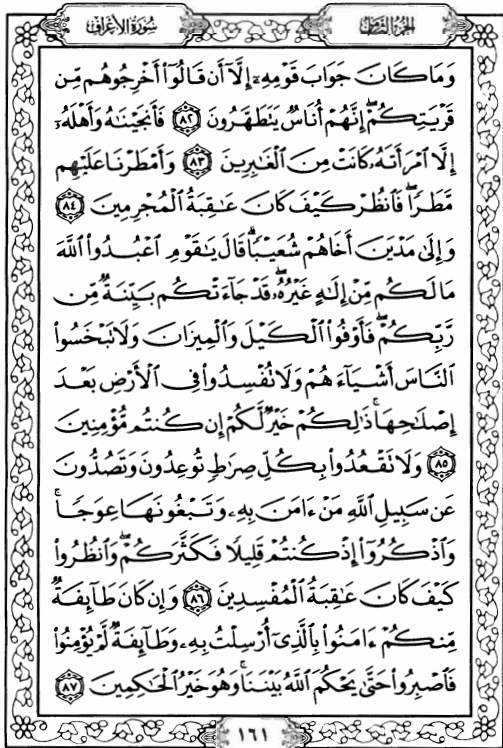 سُورَةُ الأَعْرَافِ
الجُزْءُ الثَّامِنُ
وَمَا كَانَ جَوَابَ قَوْمِهِۦٓ إِلَّآ أَن قَالُوٓا۟ أَخْرِجُوهُم مِّن
قَرْيَتِكُمْ ۖ إِنَّهُمْ أُنَاسٌ يَتَطَهَّرُونَ ٨٢ فَأَنجَيْنَٰهُ وَأَهْلَهُۥٓ
إِلَّا ٱمْرَأَتَهُۥ كَانَتْ مِنَ ٱلْغَٰبِرِينَ ٨٣ وَأَمْطَرْنَا عَلَيْهِم
مَّطَرًا ۖ فَٱنظُرْ كَيْفَ كَانَ عَٰقِبَةُ ٱلْمُجْرِمِينَ ٨٤
وَإِلَىٰ مَدْيَنَ أَخَاهُمْ شُعَيْبًا ۗ قَالَ يَٰقَوْمِ ٱعْبُدُوا۟ ٱللَّهَ
مَا لَكُم مِّنْ إِلَٰهٍ غَيْرُهُۥ ۖ قَدْ جَآءَتْكُم بَيِّنَةٌ مِّن
رَّبِّكُمْ ۖ فَأَوْفُوا۟ ٱلْكَيْلَ وَٱلْمِيزَانَ وَلَا تَبْخَسُوا۟
ٱلنَّاسَ أَشْيَآءَهُمْ وَلَا تُفْسِدُوا۟ فِى ٱلْأَرْضِ بَعْدَ
إِصْلَٰحِهَا ۚ ذَٰلِكُمْ خَيْرٌ لَّكُمْ إِن كُنتُم مُّؤْمِنِينَ
٨٥ وَلَا تَقْعُدُوا۟ بِكُلِّ صِرَٰطٍ تُوعِدُونَ وَتَصُدُّونَ
عَن سَبِيلِ ٱللَّهِ مَنْ ءَامَنَ بِهِۦ وَتَبْغُونَهَا عِوَجًا ۚ
وَٱذْكُرُوٓا۟ إِذْ كُنتُمْ قَلِيلًا فَكَثَّرَكُمْ ۖ وَٱنظُرُوا۟
كَيْفَ كَانَ عَٰقِبَةُ ٱلْمُفْسِدِينَ ٨٦ وَإِن كَانَ طَآئِفَةٌ
مِّنكُمْ ءَامَنُوا۟ بِٱلَّذِىٓ أُرْسِلْتُ بِهِۦ وَطَآئِفَةٌ لَّمْ يُؤْمِنُوا۟
فَٱصْبِرُوا۟ حَتَّىٰ يَحْكُمَ ٱللَّهُ بَيْنَنَا ۚ وَهُوَ خَيْرُ ٱلْحَٰكِمِينَ ٨٧
١٦١